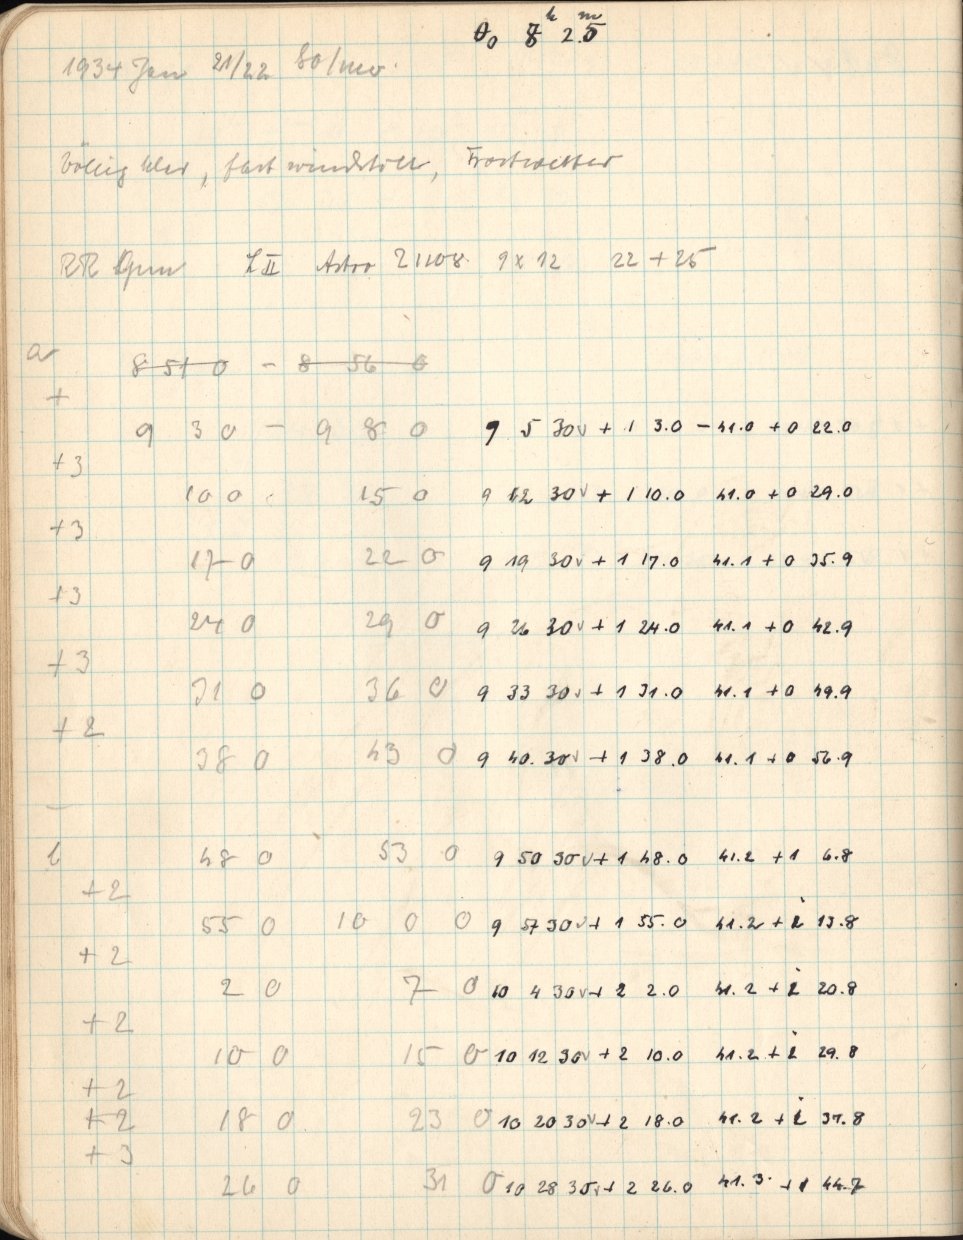 θ₀ 8ʰ 25ᵐ
1934 Jan 21/22 So/Mo.
Völlig klar, fast windstill, Frostwetter
RR Gem L II Astro 21108 9x12 22+25
a
8 51 0 - 8 56 0
+
9 3 0 - 9 8 0 9 5 30v + 1 3.0 - 41.0 + 0 22.0
+3
10 0 15 0 9 12 30v + 1 10.0 41.0 + 0 29.0
+3
17 0 22 0 9 19 30v + 1 17.0 41.1 + 0 35.9
+3
24 0 29 0 9 26 30v + 1 24.0 41.1 + 0 42.9
+3
31 0 36 0 9 33 30v + 1 31.0 41.1 + 0 49.9
+2
38 0 43 0 9 40 30v + 1 38.0 41.1 + 0 56.9
-
b 48 0 53 0 9 50 30v + 1 48.0 41.2 + 1 6.8
+2
55 0 10 0 0 9 57 30v + 1 55.0 41.2 + 1 13.8
+2
2 0 7 0 10 4 30v + 2 2.0 41.2 + 1 20.8
+2
10 0 15 0 10 12 30v + 2 10.0 41.2 + 1 29.8
+2
+2 18 0 23 0 10 20 30v + 2 18.0 41.2 + 1 37.8
+3
26 0 31 0 10 28 30v + 2 26.0 41.3 + 1 44.7